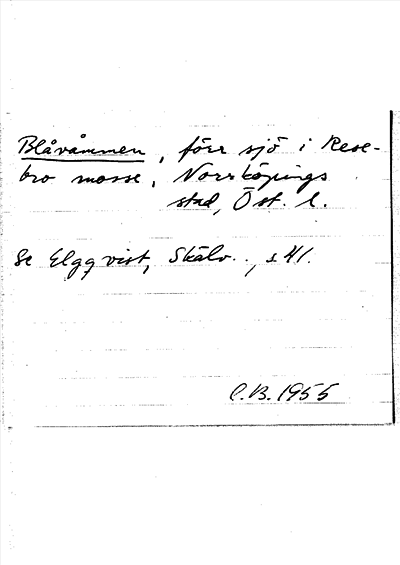 Blåvåmmen, förr sjö i Rese-
bro mosse, Norrköpings
stad, Öst. l.
Se Elgqvist, Skälv.., s 41.
C.B. 1955